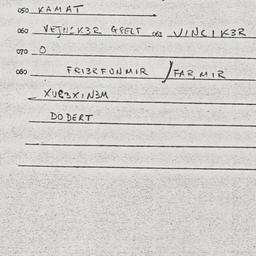 050 KAMAT
060 VEJN:K3R GEELT 061 VINCIK3R
070 O
080 FRI3RFUNMIR / FAR, MIR
XUE3XIN3M
DODERT